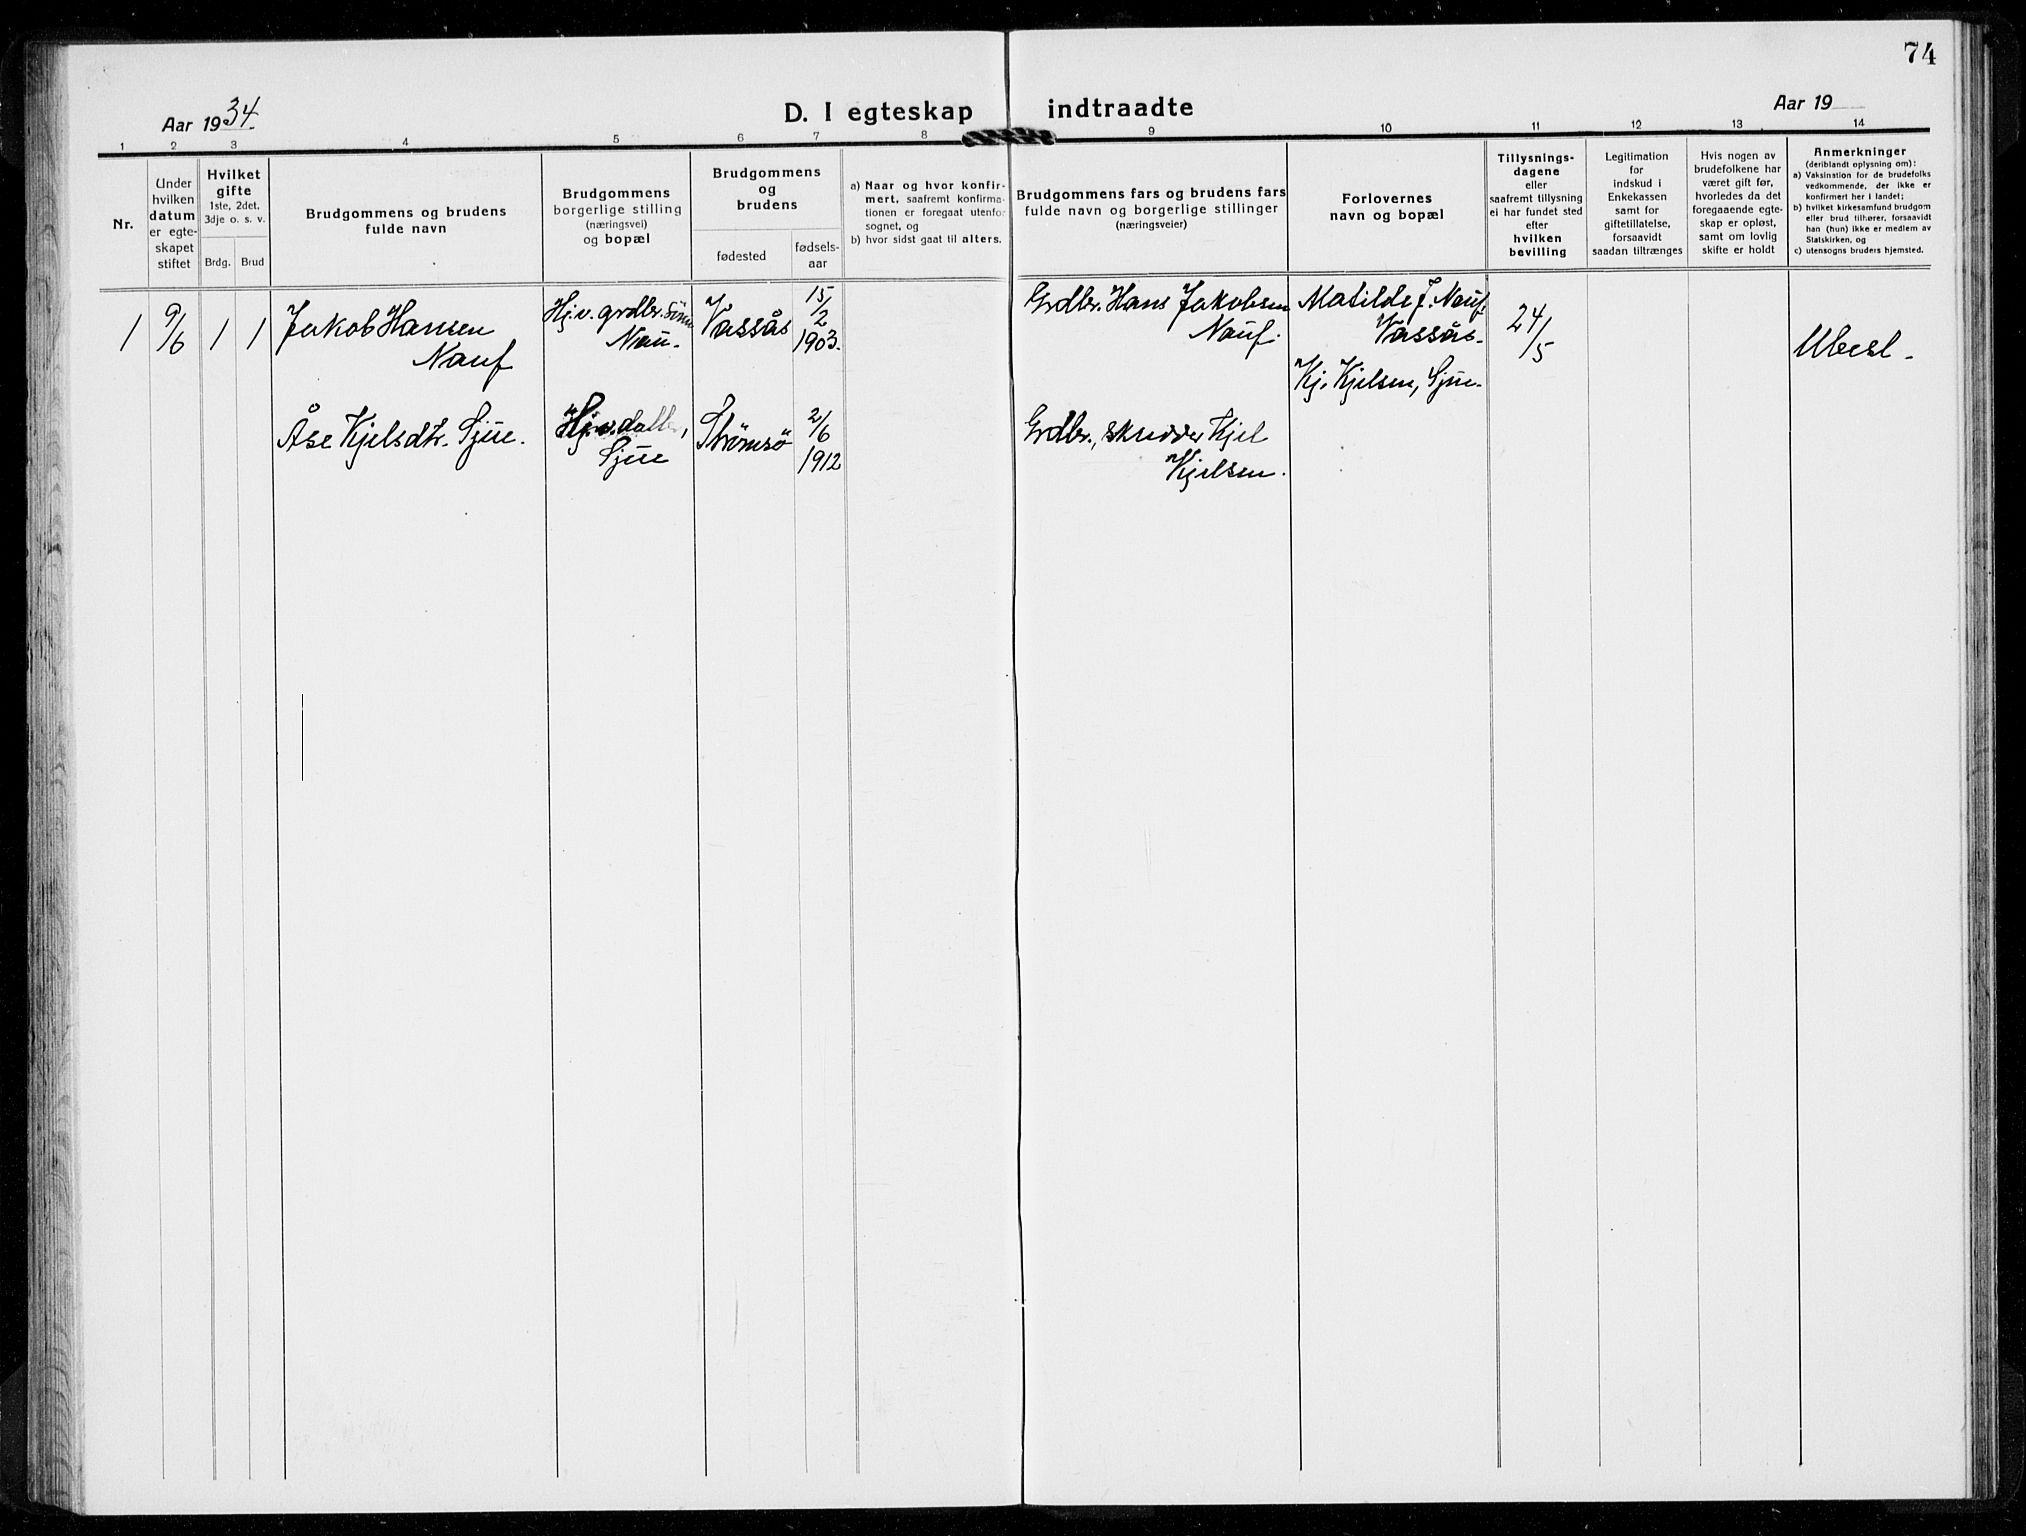 74
Aar 1934.
D. I egteskap indtraadte
Aar 19
1 2 3 4 5 6 7 8 9 10 11 12 13 14
Nr.
Under
hvilken
datum
er egte-
skapet
stiftet
Hvilket
gifte
1ste, 2det,
3dje o. s. v.
Brdg. Brud
Brudgommens og brudens
fulde navn
Brudgommens
borgerlige stilling
(næringsvei)
og bopæl
Brudgommens
og
brudens
fødested
fødsels-
aar
a) Naar og hvor konfir-
mert, saafremt konfirma-
tionen er foregaat utenfor
sognet, og
b) hvor sidst gaat til alters.
Brudgommens fars og brudens fars
fulde navn og borgerlige stillinger
(næringsveier)
Forlovernes
navn og bopæl
Tillysnings-
dagene
eller
saafremt tillysning
ei har fundet sted
efter
hvilken
bevilling
Legitimation
for
indskud i
Enkekassen
samt for
giftetillatelse,
forsaavidt
saadan tiltrænges
Hvis nogen av
brudefolkene har
været gift før,
hvorledes da det
foregaaende egte-
skap er opløst,
samt om lovlig
skifte er holdt
Anmerkninger
(deriblandt oplysning om):
a) Vaksination for de brudefolks
vedkommende, der ikke er
konfirmert her i landet;
b) hvilket kirkesamfund brudgom
eller brud tilhører, forsaavidt
han (hun) ikke er medlem av
Statskirken, og
c) utensogns bruders hjemsted.
1 9/6 1 1
Jakob Hansen
Nauf
Hj.v. grdbr. sönn
Nau.
Vassås
15/2
1903.
Grdbr. Hans Jakobsen
Nauf.
Matilde J. Nauf
Vassås.
Kj. Kjelsen, Sjue.
24/5
Ubesl.
Åse Kjelsdtr. Sjue.
Hj.v. datter,
Sjue
Strömsö
2/6
1912
Grdbr., skredder Kjel
Kjelsen.